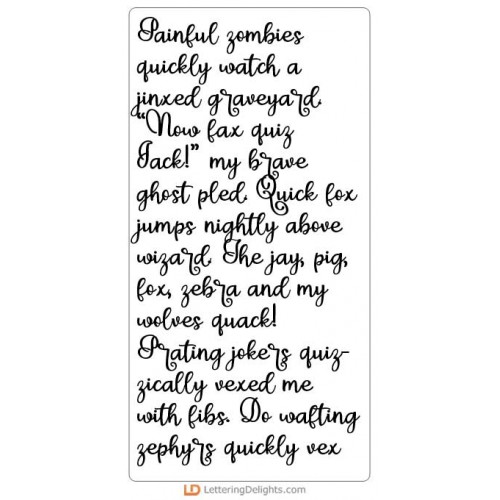 Painful zombies
quickly watch a
jinxed graveyard.
"Now fax quiz
Jack!" my brave
ghost pled. Quick fox
jumps nightly above
wizard. The jay, pig,
fox, zebra and my
wolves quack!
Prating jokers quiz-
zically vexed me
with fibs. Do wafting
zephyrs quickly vex
LD LetteringDelights.com